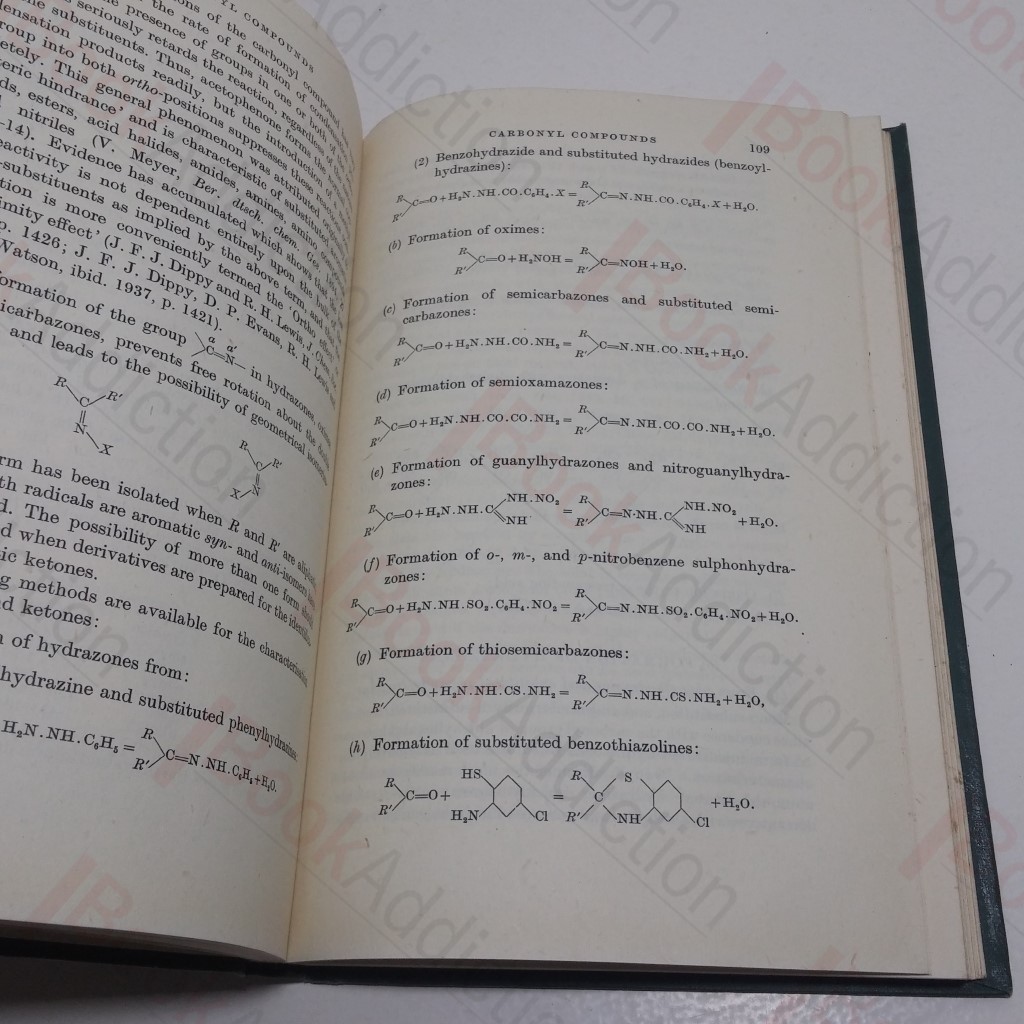 YL COMPOUNDS
ons of the carbonyl
the rate of formation
e presence of groups in one or both of the
seriously retards the reaction, regardless of
he substituents. Thus, acetophenone forms
densation products readily, but the introduction of
roup into both ortho-positions suppresses these
etely. This general phenomenon was attributed
teric hindrance' and is characteristic of substituted
ds, esters, acid halides, amides, amines, amino
nitriles (V. Meyer, Ber. dtsch. chem. Ges.
-14). Evidence has accumulated which shows that
eactivity is not dependent entirely upon the bulk of
-substituents as implied by the above term, and the
tion is more conveniently termed the 'Ortho effect'
ximity effect' (J. F. J. Dippy and R. H. Lewis, J. Chem.
p. 1426; J. F. J. Dippy, D. P. Evans, R. H. Lewis
Watson, ibid. 1937, p. 1421).
ormation of the group C=N— in hydrazones,
icarbazones, prevents free rotation about the
and leads to the possibility of geometrical
R R'
C
N
X
R R'
C
X N
rm has been isolated when R and R' are
th radicals are aromatic syn- and anti-isomers
d. The possibility of more than one form
d when derivatives are prepared for the
ic ketones.
ng methods are available for the characterisation
nd ketones:
n of hydrazones from:
hydrazine and substituted phenylhydrazines:
H₂N.NH.C₆H₅ = R R' C=N.NH.C₆H₅+H₂O.
CARBONYL COMPOUNDS 109
(2) Benzohydrazide and substituted hydrazides (benzoyl-
hydrazines):
R R' C=O+H₂N.NH.CO.C₆H₄.X = R R' C=N.NH.CO.C₆H₄.X+H₂O.
(b) Formation of oximes:
R R' C=O+H₂NOH = R R' C=NOH+H₂O.
(c) Formation of semicarbazones and substituted semi-
carbazones:
R R' C=O+H₂N.NH.CO.NH₂ = R R' C=N.NH.CO.NH₂+H₂O.
(d) Formation of semioxamazones:
R R' C=O+H₂N.NH.CO.CO.NH₂ = R R' C=N.NH.CO.CO.NH₂+H₂O.
(e) Formation of guanylhydrazones and nitroguanylhydra-
zones:
R R' C=O+H₂N.NH.C NH.NO₂ NH = R R' C=N·NH.C NH.NO₂ NH +H₂O.
(f) Formation of o-, m-, and p-nitrobenzene sulphonhydra-
zones:
R R' C=O+H₂N.NH.SO₂.C₆H₄.NO₂ = R R' C=N.NH.SO₂.C₆H₄.NO₂+H₂O.
(g) Formation of thiosemicarbazones:
R R' C=O+H₂N.NH.CS.NH₂ = R R' C=N.NH.CS.NH₂+H₂O,
(h) Formation of substituted benzothiazolines:
R R' C=O+ HS H₂N Cl = R R' C S NH Cl +H₂O.
BookAddiction